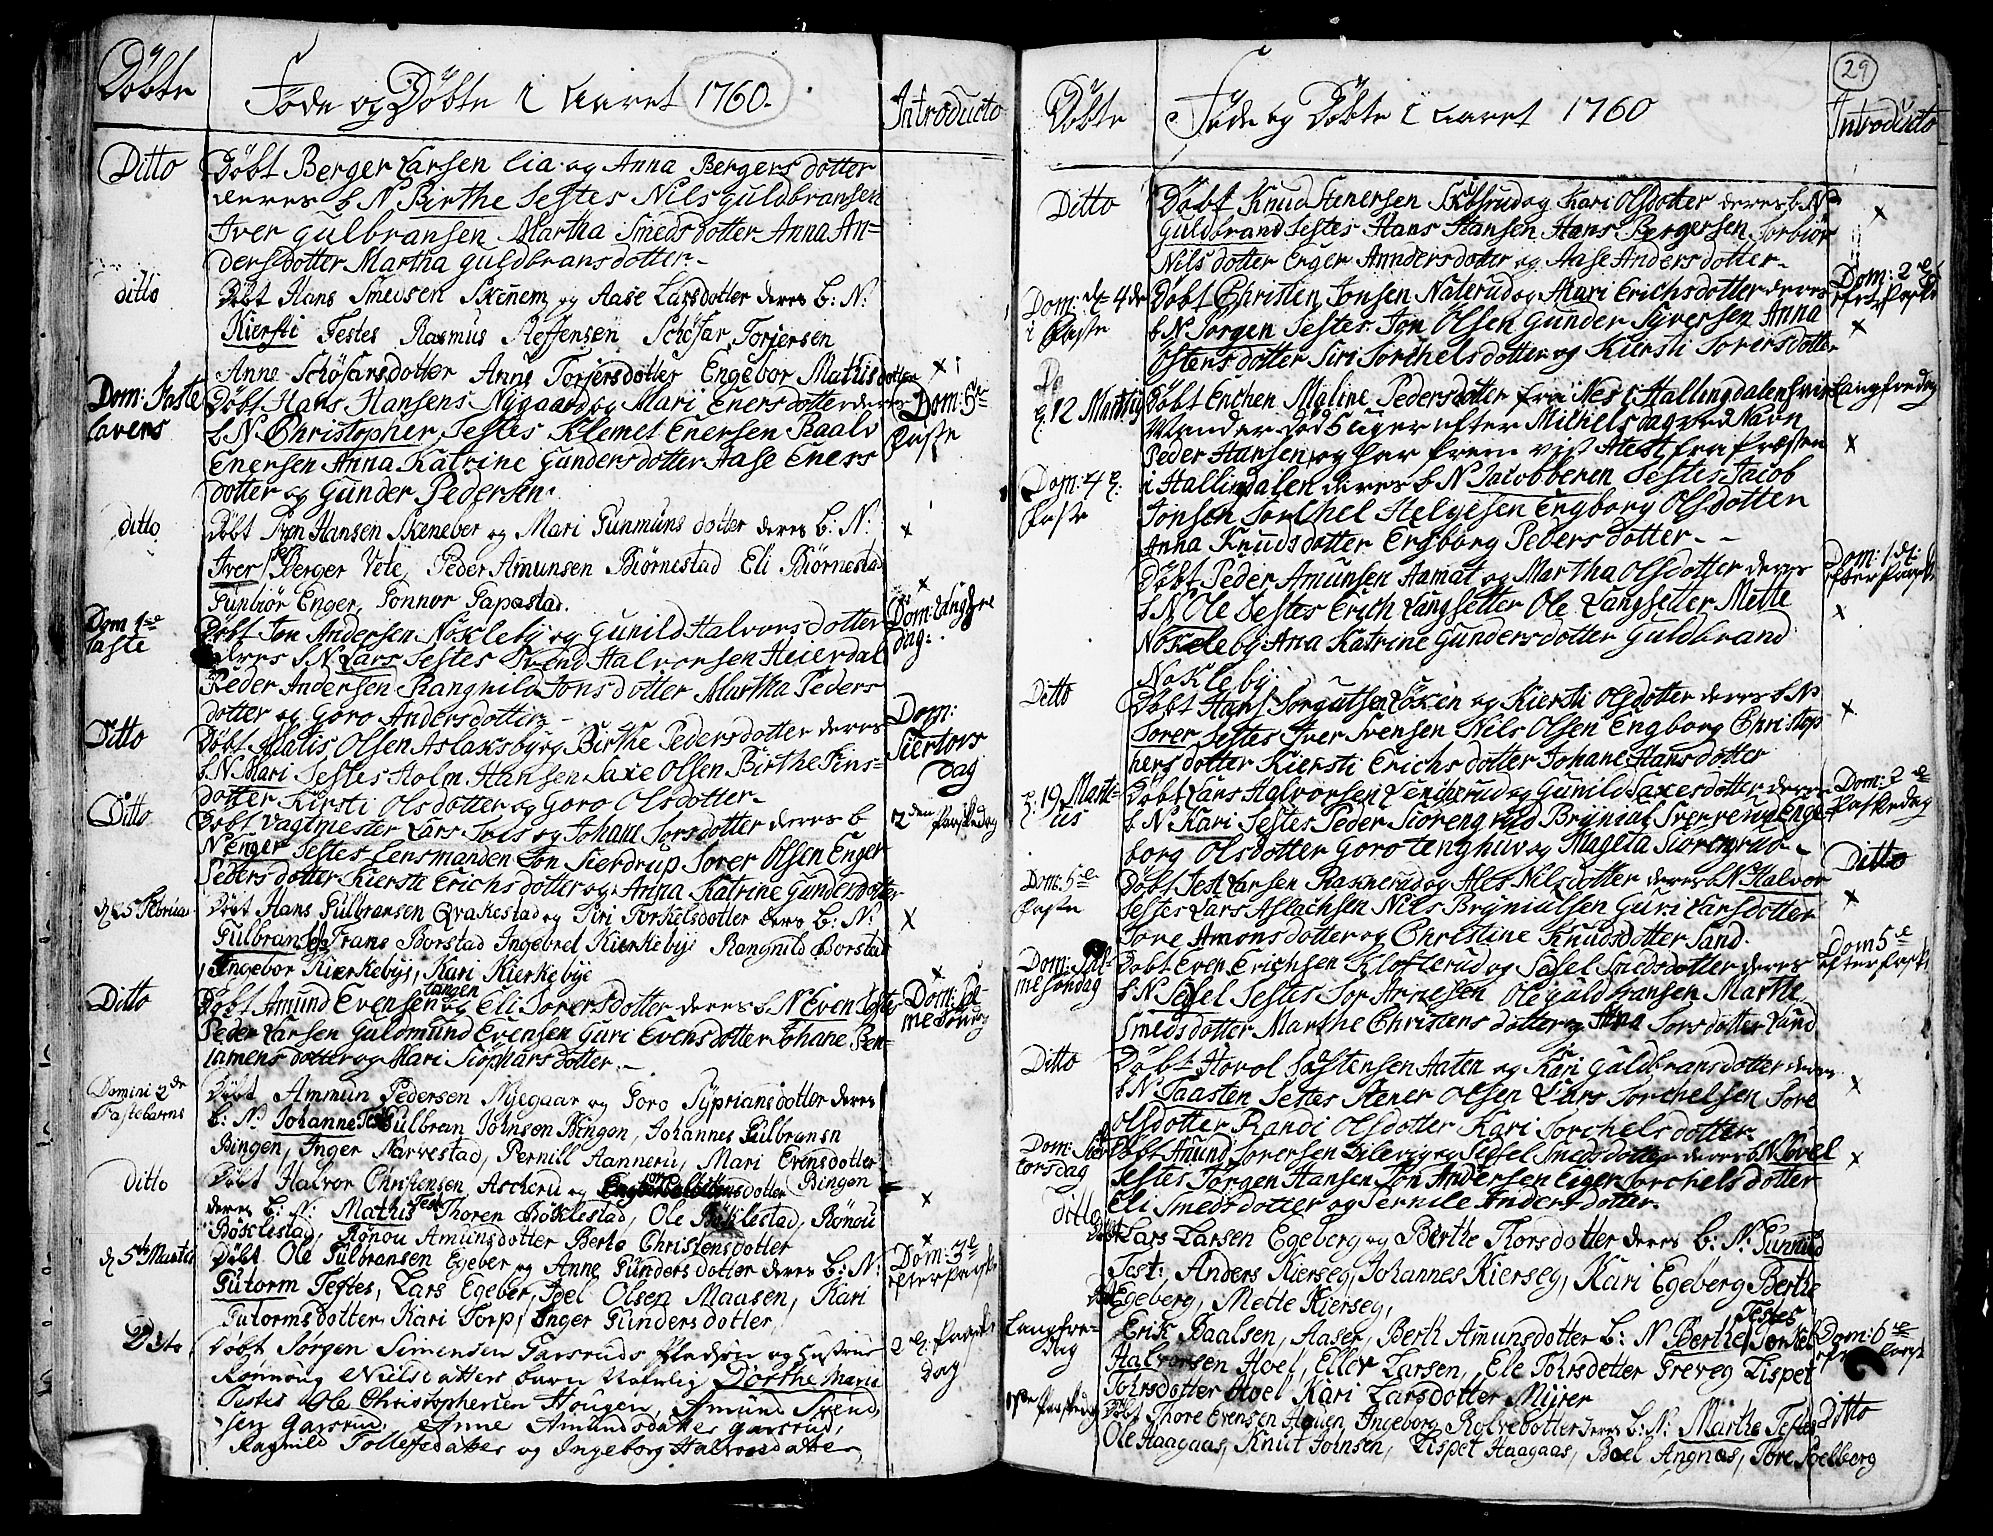 Döbte
Föde og Döbte i Aaret 1760.
Introducto
Ditto
Döbt Berger Larsen Lia og Anna Bergersdotter
deres b N Birthe Testes Nils Guldbransen
Iver Gulbransen Martha Smedsdotter Anna An=
dersdotter Martha Guldbransdotter.
ditto
Döbt Hans Smedsen Skinem og Aase Larsdotter deres B: N:
Kiersti Testes Rasmus Steffensen Schöfar Torjersen
Anne Schöfarsdotter Anne Torjersdotter Engebor Mathisdotter
Dom: Faste
lavens
Döbt Hans Hansens Nygaard og Mari Enersdotter deres
b N Christopher Testes Klemet Enersen Raalv
Enersen Anna Katrine Gundersdotter Aase Eners
dotter og Gunder Pedersen.
Dom: 5te
Faste
ditto
Döbt Hansen Skeneber og Mari Gunmunsdotter deres B: N:
Iver Berger Vete, Peder Amunsen Biörnestad Eli Biörnestad
Gunbiör Enger, Gonnor Papastad.
Dom 1ste
faste
Döbt Jon Andersen Nöckleby og Gunild Halvorsdotter
deres b N Lars Testes Svend Halvorsen Heierdal
Peder Andersen Rangnild Jonsdotter Martha Peders
dotter og Goro Andersdotter
Dom: Langfre
dag:
Ditto
Döbt Matis Olsen Aslaksbyeg Birthe Pedersdotter deres
b N Mari Testes Holm Hansen Saxe Olsen Birthe Fins=
dotter Kirsti Olsdotter og Goro Olsdotter
Dom:
Siertors
Dag
Ditto
Döbt Vagtmester Lars Sols og Johane Torsdotter deres b
N Enger Testes Lensmanden Jon Skierdrup Torer Olsen Enger
Pedersdotter Kierste Erichsdotter og Anna Katrine Gundersdotter
2den Paaskedag
d 25 Februa
Döbt Hans Gulbransen Qvakestad og Siri Torkelsdotter deres B: N:
Gulbrand Frans Borstad Ingebret Kierkebye Rangnild Borstad
Ingebor Kierkebye, Kari Kierkebye
Ditto
Döbt Amund Evensen Tangen og Eli Torersdotter deres b N Even Testes
Peder Larsen Guldmund Evensen Guri Evensdotter Johane Ben=
iamensdotter og Mari Siöphärsdotter.
Dom: Pal=
mesöndag
Domini 2de
Fastelavns
Döbt Ammun Pedersen Nyegaar og Goro Syprians dotter deres
B: N: Johanne Test Gulbran Johnsen Bingen, Johannes Gulbransn
Bingen, Inger Narvestad, Pernill Aanneru, Mari Evensdotter
Bingen
ditto
Döbt Halvor Christensen Ascheru og dotter
deres B: N: Mathis Test Thoren Böklestad, Ole Böklestad, Rönou
Böklestad, Rönou Amunsdotter Berte Christensdotter
d 5te Martii
Döbt Ole Gulbransen Egeber og Anne Gundersdotter deres B: N:
Gutorm Testes, Lars Egeber, Joel Olsen Maasen, Kari
Gutormsdotter Kari Torp, Inger Gundersdotter
Dom: 3de
efter Paaske
Ditto
Döbt Jörgen Simensen Garsruds Pladsen og Hustrue
Rönnoug Nielsdatters barn Nafnlig Dorthe Maria
Testes Ole Christophersen Hougen, Amund Svend
sen Garsrud, Anne Amundsdatter Garsrud,
Ragnild Tollefsdatter og Ingeborg Halvorsdatter
2 d. Paaske
dag
29
Döbte
Föde og Döbte i Aaret 1760
Introducto
Ditto
Döbt Knud Stenersen Skibsrud og Kari Olsdotter deres b N
Guldbrand Testes Hans Hansen Hans Bergersen Torbiör
Nilsdotter Enger Anndersdotter og Aase Andersdotter
Dom: d 4de
i Faste
Döbt Christen Jonsen Naterud og Mari Erichsdotter deres
b N Jorgen Testes Jon Olsen Gunder Syversen Anna
Ostensdotter Siri Torchelsdotter og Kiersti Torersdotter
Dom: 2de
efter Paaske
d. 12 Martii
Döbt Enchen Maline Pedersdotter fra Nes i Hallingdalen hvis
Mander död 5 uger efter Mikkelsdag ved Navn
Peder Hansen, og har frem vist Atest fra Præsten
i Hallindalen deres b N Jacobberen Testes Jacob
Jonsen Torchel Helgesen Engborg Olsdotter
Anna Knudsdotter Engborg Pedersdotter
Langfredag
Dom: 4 d.
Faste
Döbt Peder Amunsen Aamot og Martha Olsdotter deres
b N Ole Testes Erich Langsetter Ole Langsetter Mette
Nökeleby Ana Katrine Gundersdotter Guldbrand
Nokleby.
Dom: 1 d:
efter Paaske
Ditto
Döbt Hans Torgutsen Löken og Kiersti Olsdotter deres b N
Torer Testes Iver Svensen Nils Olsen Engborg Christop
hersdotter Kiersti Erichsdotter Johane Hansdotter
d. 19 Marti=
us
Döbt Lars Halvorsen Lencherud og Gunild Saxesdotter deres
b N Kari Testes Peder Siorengrud Bryniul Sverreng Enge
borg Olsdotter Goro Tenghuv og Mageta Siorengrud
Dom: 2de
Paaskedag
Dom: 5te
Faste
Döbt Jest Larsen Raknerud og Ales Nilsdotter deres b N Halvor
Testes Lars Aslachsen Nils Bryniulsen Guri Larsdotter
Tore Amonsdotter og Christine Knudsdotter Sand.
Ditto
Dom: Pal=
mesöndag
Döbt Even Erichsen Klofterud og Sesel Smedsdotter deres
b N Sesel Testes Tor Arnesen Ole Guldbransen Marthe
Smedsdotter Marthe Christensdotter og Ana Torsdotter Lund
Dom 5te
efter Paaske
Ditto
Döbt Horol Tostensen Aaten og Kari Guldbransdotter deres
b N Taasten Testes Stener Olsen Lars Torchelsen Tore
Olsdotter Randi Olsdotter Kari Torchelsdotter
Dom: Skier
torsdag
Döbt Amund Torersen Lilevig og Sesel Smedsdotter deres b N Povel
Testes Jörgen Hansen Jon Andersen Eiger Torchelsdotter
Eli Smedsdotter og Pernile Andersdotter.
ditto
Döbt Lars Larsen Egeberg og Berthe Thorsdotter deres B: N: Gunnild
Test: Anders Kierseg, Johannes Kierseg, Kari Egeberg Berthe
Egeberg, Mette Kierseg,
Langfre=
dag
Erik Baalsen, Aaser, Berth Amunsdotter B: N Berthe Testes Torkel
Halvorsen Hoel, Ellov Larsen, Ele Tohrsdotter Greveg Lispet
Tohrsdotter Hoel Kari Larsdotter Myrer
Dom: 6te
efter Paaske
1ste Paaskedag
Döbt Thore Evensen Hougn, Ingeborg Rolvsdotter deres B: N: Marthe Testes
Ole Haagaas, Knut Tohnsen, Lispet Haagaas, Boel Angnæs, Tore Soelberg
ditto